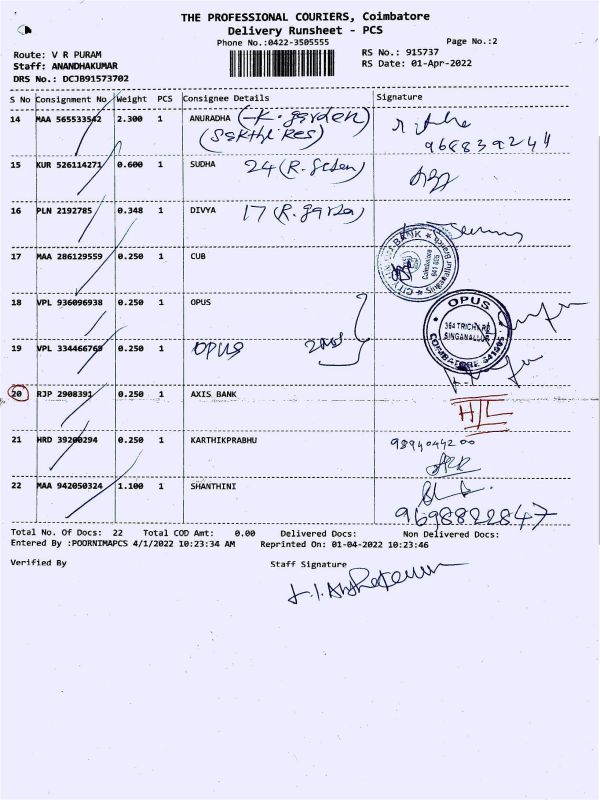 THE PROFESSIONAL COURIERS, Coimbatore
Delivery Runsheet - PCS
Phone No.:0422-3505555
Page No.:2
Route: V R PURAM
Staff: ANANDHAKUMAR
DRS No.: DCJB91573702
RS No.: 915737
RS Date: 01-Apr-2022
S No Consignment No Weight PCS Consignee Details Signature
14 MAA 565533542 2.300 1 ANURADHA (K. garden)
(Sakthi Res)
9688392411
15 KUR 526114271 0.600 1 SUDHA 24
16 PLN 2192785 0.348 1 DIVYA 17
17 MAA 286129559 0.250 1 CUB
CITY UNION BANK
Singanallur Branch
Coimbatore
641 005
18 VPL 936096938 0.250 1 OPUS
OPUS
364 TRICHY RD
SINGANALLUR
COIMBATORE 641005
19 VPL 334466765 0.250 1 OPUS
20 RJP 2908391 0.250 1 AXIS BANK
21 HRD 39200294 0.250 1 KARTHIKPRABHU 9894044200
22 MAA 942050324 1.100 1 SHANTHINI
9698822847
Total No. Of Docs: 22 Total COD Amt: 0.00 Delivered Docs: Non Delivered Docs:
Entered By :POORNIMAPCS 4/1/2022 10:23:34 AM Reprinted On: 01-04-2022 10:23:46
Verified By Staff Signature